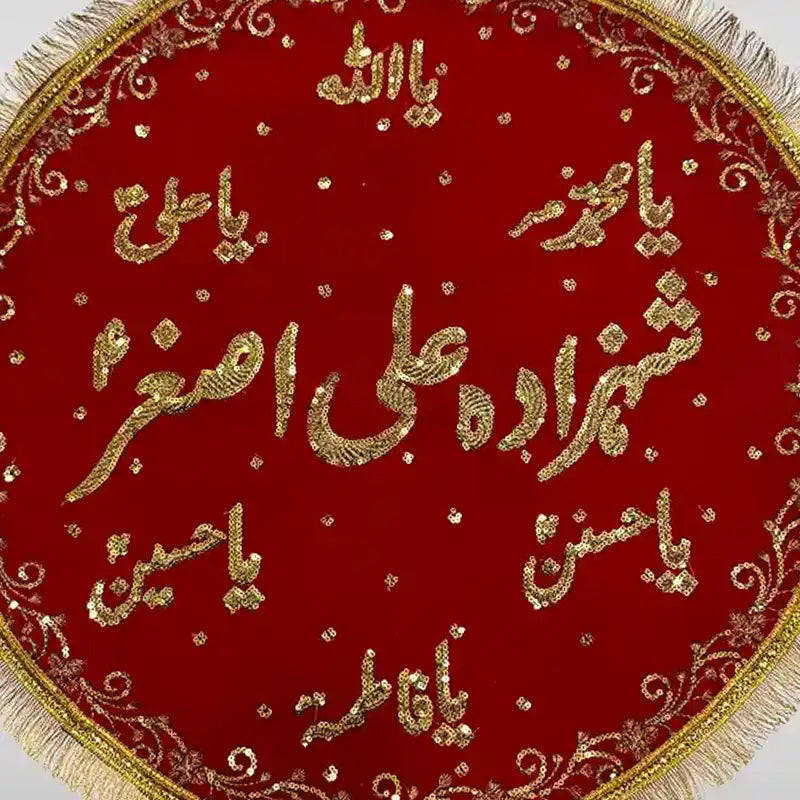 یا اللہ
یا محمدؐ یا علیؑ
شہزادہ علی اصغرؑ
یا حسنؑ یا حسینؑ
یا فاطمہؑ